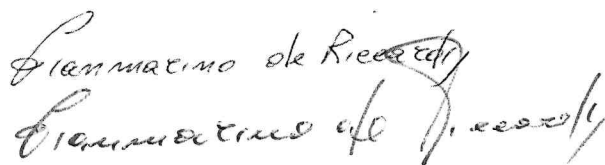 Gianmarino de Riccardi
Gianmarino de Riccardi